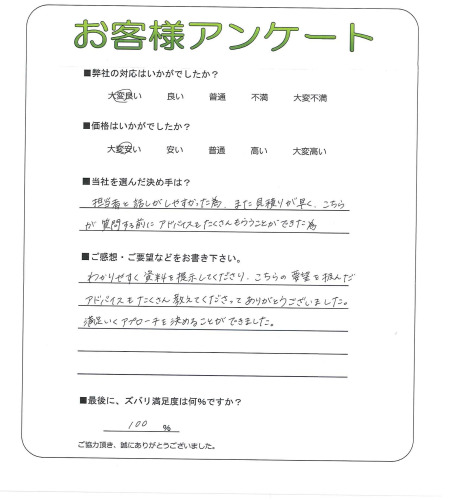 お客様アンケート
■弊社の対応はいかがでしたか？
大変良い 良い 普通 不満 大変不満
■価格はいかがでしたか？
大変安い 安い 普通 高い 大変高い
■当社を選んだ決め手は？
担当者と話しがしやすかった為、また見積りが早く、こちら
が質問する前にアドバイスもたくさんもらうことができた為
■ご感想・ご要望などをお書き下さい。
わかりやすく資料を提示してくださり、こちらの要望を汲んだ
アドバイスもたくさん教えてくださってありがとうございました。
満足いくアプローチを決めることができました。
■最後に、ズバリ満足度は何%ですか？
100 %
ご協力頂き、誠にありがとうございました。